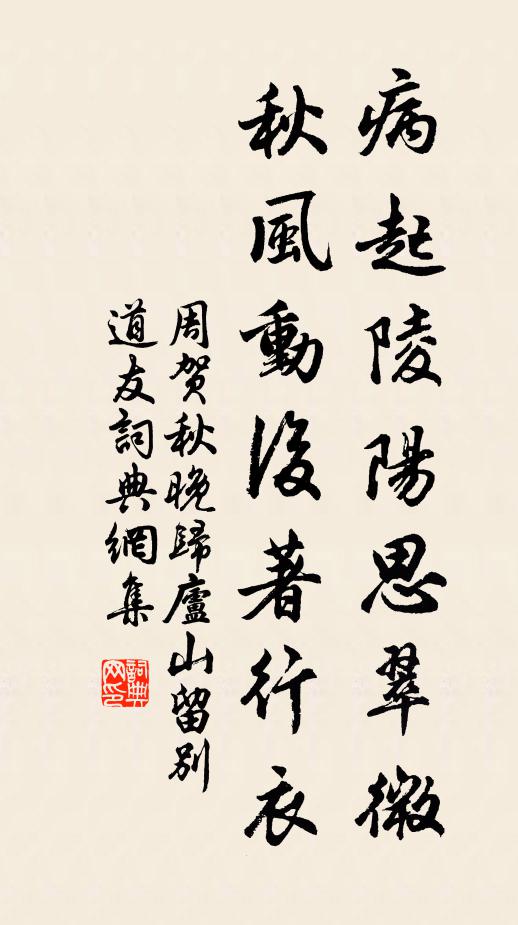 病起陵陽思翠微
秋風動後著行衣
周賀秋晚歸廬山留別
道友詞典網集
詞典网印